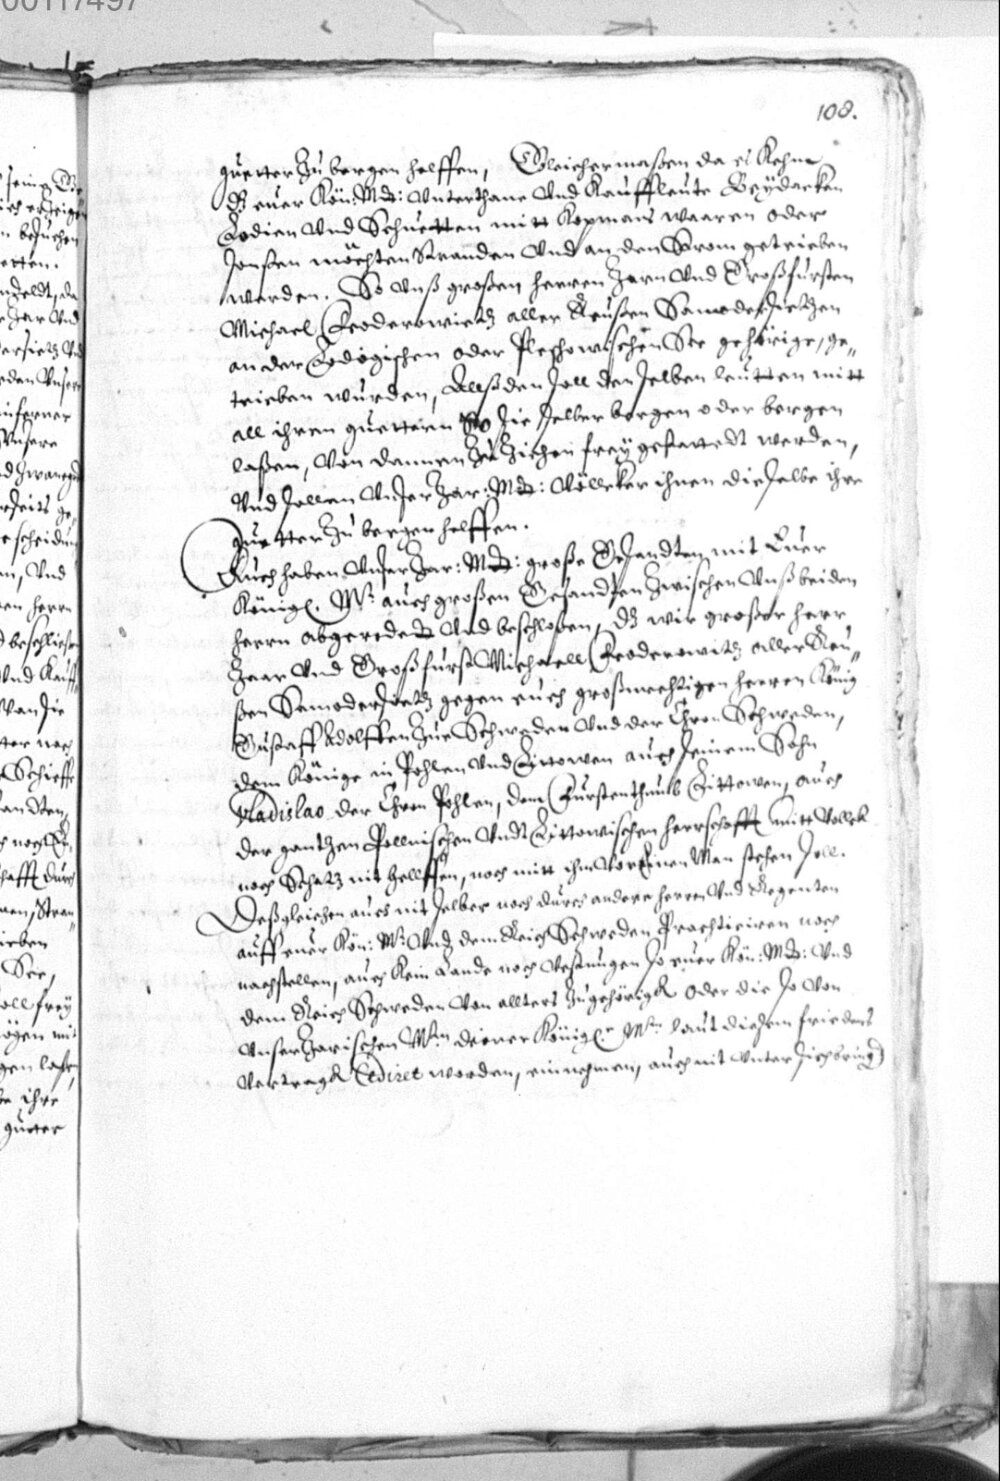 00117497
108.
guetter zu bergen helffen, Gleichermaßen da es Kehme
dz euer Kön: Mtt: Unterthane Und Kauffleute Beydacken
Lodien Und Schuetten mitt Kopmans waaren oder
sonsten möchten stranden Und an den Strom getrieben
werden. So Unß großen herren Zaren Und Großfürsten
Michael Feoderowietz aller Reußen Samoderzietzen
an der Lodogischen oder Pleschowischen See gehörige, ge„
trieben würden, Allßden soll denselben leutten mitt
all ihren guettern So sie selber bergen oder bergen
laßen, Von dannen zu Ziehen frey gestattedt werden,
Und sollen Unser Zar: Mtt: Völleker ihnen dieselbe ihre
guetter zu bergen helffen.
Auch haben Unser Zar: Mtt: große Gesandten mit Euer
Königl. Mt: auch großen Gesandten Zwischen Unß beiden
herrn abgeredett Und beschloßen, dz wir großer herr
Zaar Und Großfürst Michaell Feoderowitz aller Reu„
ßen Samoderzietz gegen euch großmechtigen herren König
Gustaff Adolffen Zue Schweden Und der Chron Schweden,
dem Könige in Pohlen Und Littowen auch seinem Sohn
Vladislao der Chron Pohlen, dem Furstenthumb Littowen, auch
der gantzen Pollnischen Undt Littowischen herrschafft mitt Vollck
noch Schatz nit hellffen, noch mitt ihm Vor Einen Man stehen soll.
Deßgleichen auch nit selber noch durch andere herren Und Regenten
auff euer Kön: Mt: Und dem Reich Schweden Practicieren noch
nachstellen, auch Kein Lande noch Vestungen so euer Kön: Mtt: Und
dem Reich Schweden Von allters zugehörigk oder die so Von
Unser Zarischen Mttn deiner Königl.n Mttn laut diesem friedens
Vertragk Cediret worden, einnehmen, auch nit Unter sich bring